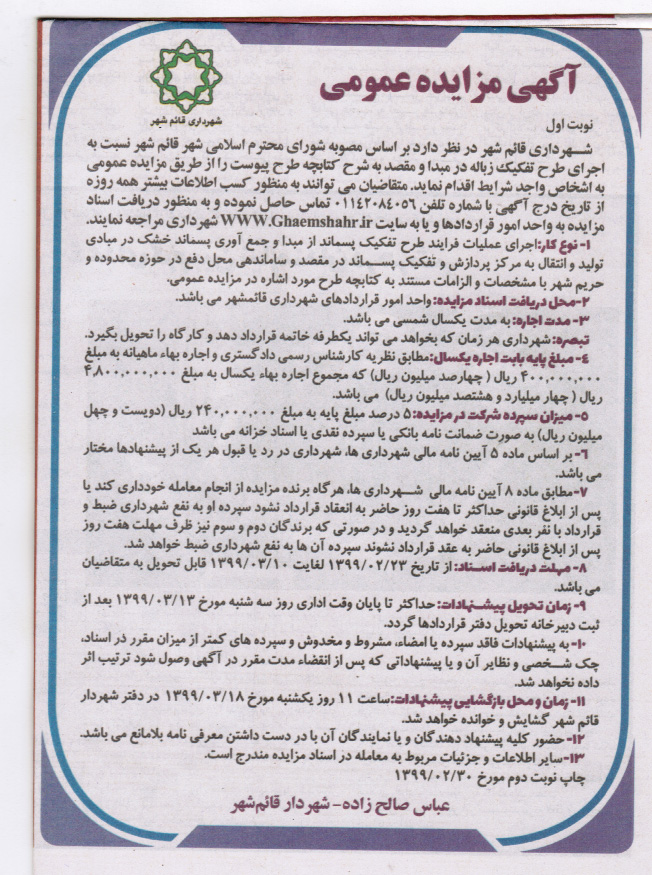 آگهی مزایده عمومی
شهرداری قائم شهر
نوبت اول
شـــهرداری قائم شهر در نظر دارد بر اساس مصوبه شورای محترم اسلامی شهر قائم شهر نسبت به
اجرای طرح تفکیک زباله در مبدا و مقصد به شرح کتابچه طرح پیوست را از طریق مزایده عمومی
به اشخاص واجد شرایط اقدام نماید. متقاضیان می توانند به منظور کسب اطلاعات بیشتر همه روزه
از تاریخ درج آگهی با شماره تلفن ۰۱۱۴۲۰۸۴۰۵۶ تماس حاصل نموده و به منظور دریافت اسناد
مزایده به واحد امور قراردادها و یا به سایت WWW.Ghaemshahr.ir شهرداری مراجعه نمایند.
۱- نوع کار:اجرای عملیات فرایند طرح تفکیک پسماند از مبدا و جمع آوری پسماند خشک در مبادی
تولید و انتقال به مرکز پردازش و تفکیک پســـماند در مقصد و ساماندهی محل دفع در حوزه محدوده و
حریم شهر با مشخصات و الزامات مستند به کتابچه طرح مورد اشاره در مزایده عمومی.
۲-محل دریافت اسناد مزایده: واحد امور قراردادهای شهرداری قائمشهر می باشد.
۳- مدت اجاره: به مدت یکسال شمسی می باشد.
تبصره: شهرداری هر زمان که بخواهد می تواند یکطرفه خاتمه قرارداد دهد و کارگاه را تحویل بگیرد.
۴- مبلغ پایه بابت اجاره یکسال:مطابق نظریه کارشناس رسمی دادگستری و اجاره بهاء ماهیانه به مبلغ
۴۰۰,۰۰۰,۰۰۰ ریال ( چهارصد میلیون ریال) که مجموع اجاره بهاء یکسال به مبلغ ۴,۸۰۰,۰۰۰,۰۰۰
ریال ( چهار میلیارد و هشتصد میلیون ریال) می باشد.
۵- میزان سپرده شرکت در مزایده: ۵ درصد مبلغ پایه به مبلغ ۲۴۰,۰۰۰,۰۰۰ ریال (دویست و چهل
میلیون ریال) به صورت ضمانت نامه بانکی یا سپرده نقدی یا اسناد خزانه می باشد
۶- بر اساس ماده ۵ آیین نامه مالی شهرداری ها، شهرداری در رد یا قبول هر یک از پیشنهادها مختار
می باشد.
۷-مطابق ماده ۸ آیین نامه مالی شـــهرداری ها، هرگاه برنده مزایده از انجام معامله خودداری کند یا
پس از ابلاغ قانونی حداکثر تا هفت روز حاضر به انعقاد قرارداد نشود سپرده او به نفع شهرداری ضبط و
قرارداد با نفر بعدی منعقد خواهد گردید و در صورتی که برندگان دوم و سوم نیز ظرف مهلت هفت روز
پس از ابلاغ قانونی حاضر به عقد قرارداد نشوند سپرده آن ها به نفع شهرداری ضبط خواهد شد.
۸- مهلت دریافت اسناد: از تاریخ ۱۳۹۹/۰۲/۲۳ لغایت ۱۳۹۹/۰۳/۱۰ قابل تحویل به متقاضیان
می باشد.
۹- زمان تحویل پیشنهادات: حداکثر تا پایان وقت اداری روز سه شنبه مورخ ۱۳۹۹/۰۳/۱۳ بعد از
ثبت دبیرخانه تحویل دفتر قراردادها گردد.
۱۰- به پیشنهادات فاقد سپرده یا امضاء، مشروط و مخدوش و سپرده های کمتر از میزان مقرر در اسناد،
چک شـخصی و نظایر آن و یا پیشنهاداتی که پس از انقضاء مدت مقرر در آگهی وصول شود ترتیب اثر
داده نخواهد شد.
۱۱- زمان و محل بازگشایی پیشنهادات:ساعت ۱۱ روز یکشنبه مورخ ۱۳۹۹/۰۳/۱۸ در دفتر شهردار
قائم شهر گشایش و خوانده خواهد شد.
۱۲- حضور کلیه پیشنهاد دهندگان و یا نمایندگان آن با در دست داشتن معرفی نامه بلامانع می باشد.
۱۳-سایر اطلاعات و جزئیات مربوط به معامله در اسناد مزایده مندرج است.
چاپ نوبت دوم مورخ ۱۳۹۹/۰۲/۳۰
عباس صالح زاده- شهردار قائم‌شهر